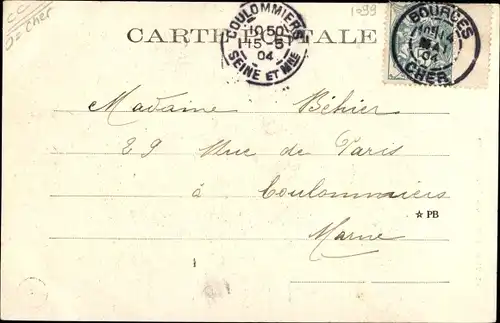 CC
D= Cher
1099
CARTE POSTALE
COULOMMIERS
10 50
15-5
04
SEINE ET MNE
BOURGES
04
CHER
Madame Béhier
29 Rue de Paris
à Coulommiers
★ PB
Marne